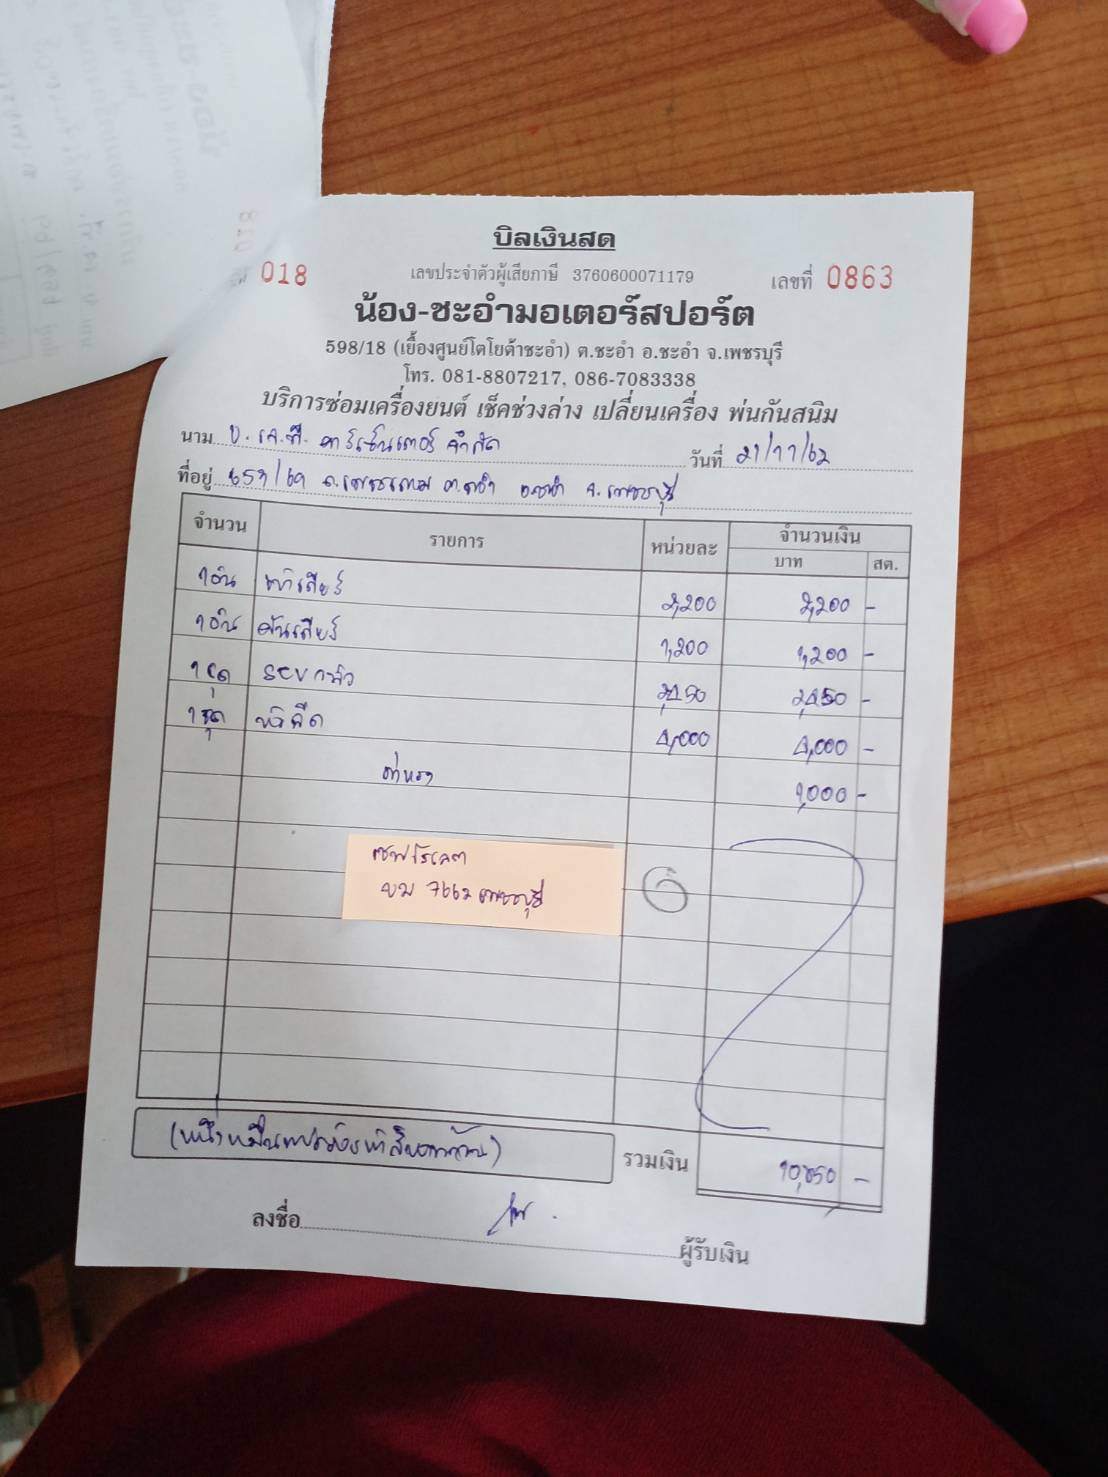 บิลเงินสด
018 เลขประจำตัวผู้เสียภาษี 3760600071179 เลขที่ 0863
น้อง-ชะอำมอเตอร์สปอร์ต
598/18 (เยื้องศูนย์โตโยต้าชะอำ) ต.ชะอำ อ.ชะอำ จ.เพชรบุรี
โทร. 081-8807217, 086-7083338
บริการซ่อมเครื่องยนต์ เช็คช่วงล่าง เปลี่ยนเครื่อง พ่นกันสนิม
นาม บ. เจ.ที. คาร์เซ็นเตอร์ จำกัด วันที่ 21/11/62
ที่อยู่ จ. เพชรบุรี
จำนวน รายการ หน่วยละ จำนวนเงิน
บาท สต.
1 อัน เกียร์ 2,200 2,200 -
1 อัน คันเกียร์ 1,200 1,200 -
1 ชุด 2,450 2,450 -
1 ชุด หัวฉีด 4,000 4,000 -
ค่าแรง 1,000 -
เชฟโรเลต
ขม 7662 เพชรบุรี
รวมเงิน 10,850 -
ลงชื่อ ผู้รับเงิน